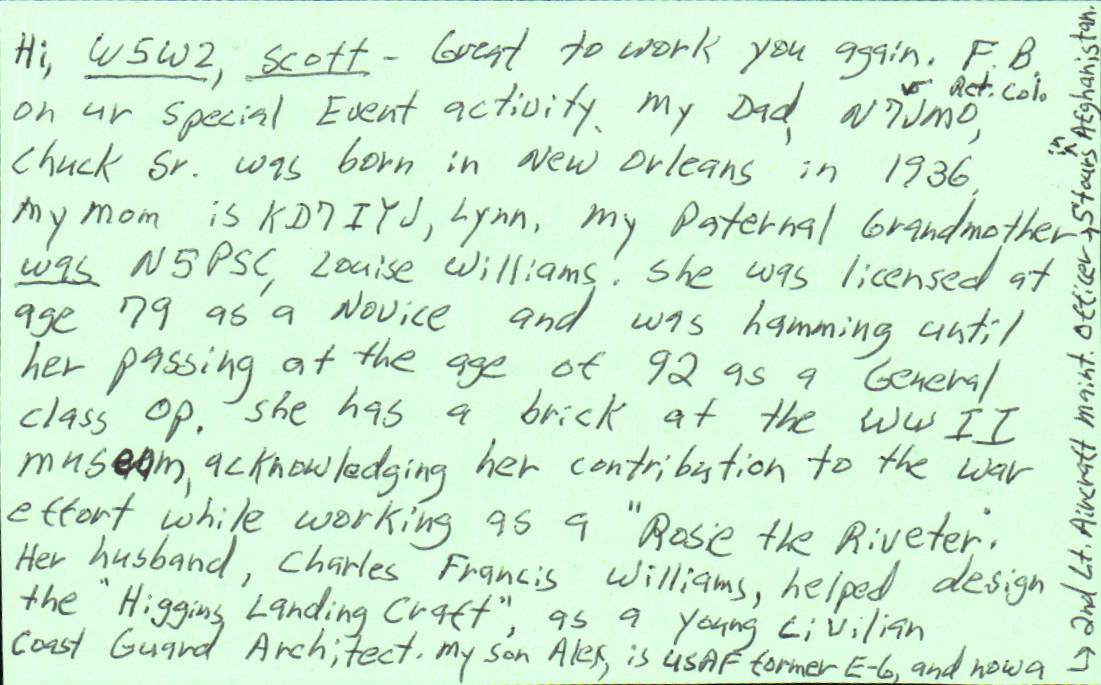 Hi, W5WZ, Scott - Great to work you again. F.B.
on ur Special Event activity. My Dad, N7JMO,
Ret. Col.
Chuck Sr. was born in New Orleans in 1936.
My mom is KD7IYJ, Lynn. My Paternal Grandmother
was N5PSC, Louise Williams. She was licensed at
age 79 as a Novice and was hamming until
her passing at the age of 92 as a General
class op. She has a brick at the WW II
museum, acknowledging her contribution to the war
effort while working as a "Rosie the Riveter".
Her husband, Charles Francis Williams, helped design
the "Higgins Landing Craft", as a young Civilian
Coast Guard Architect. My son Alex, is USAF former E-6, and now a
↳ 2nd Lt. Aircraft maint. Officer → 5 tours in Afghanistan.